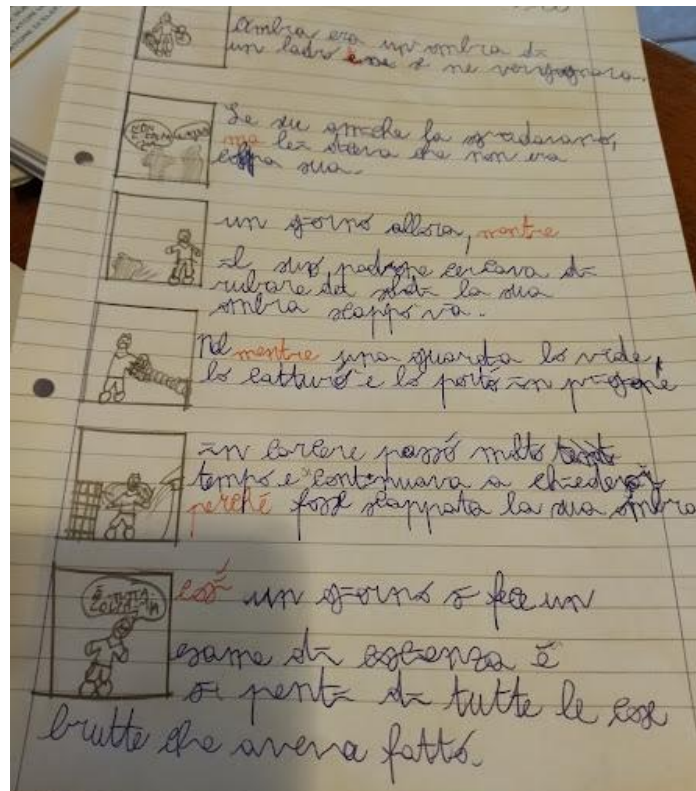 Ambra era un ombra di
un ladro e se ne vergognava.
Le sue amiche la sgridavano,
ma lei diceva che non era
colpa sua.
un giorno allora, mentre
il suo padrone cercava di
rubare dei soldi la sua
ombra scappò via.
Nel mentre una guardia lo vide,
lo catturò e lo portò in prigione
in carcere passò molto
tempo e continuava a chiedersi
perché fosse scappata la sua ombra
così un giorno si fece un
esame di coscienza e
si pentì di tutte le cose
brutte che aveva fatto.